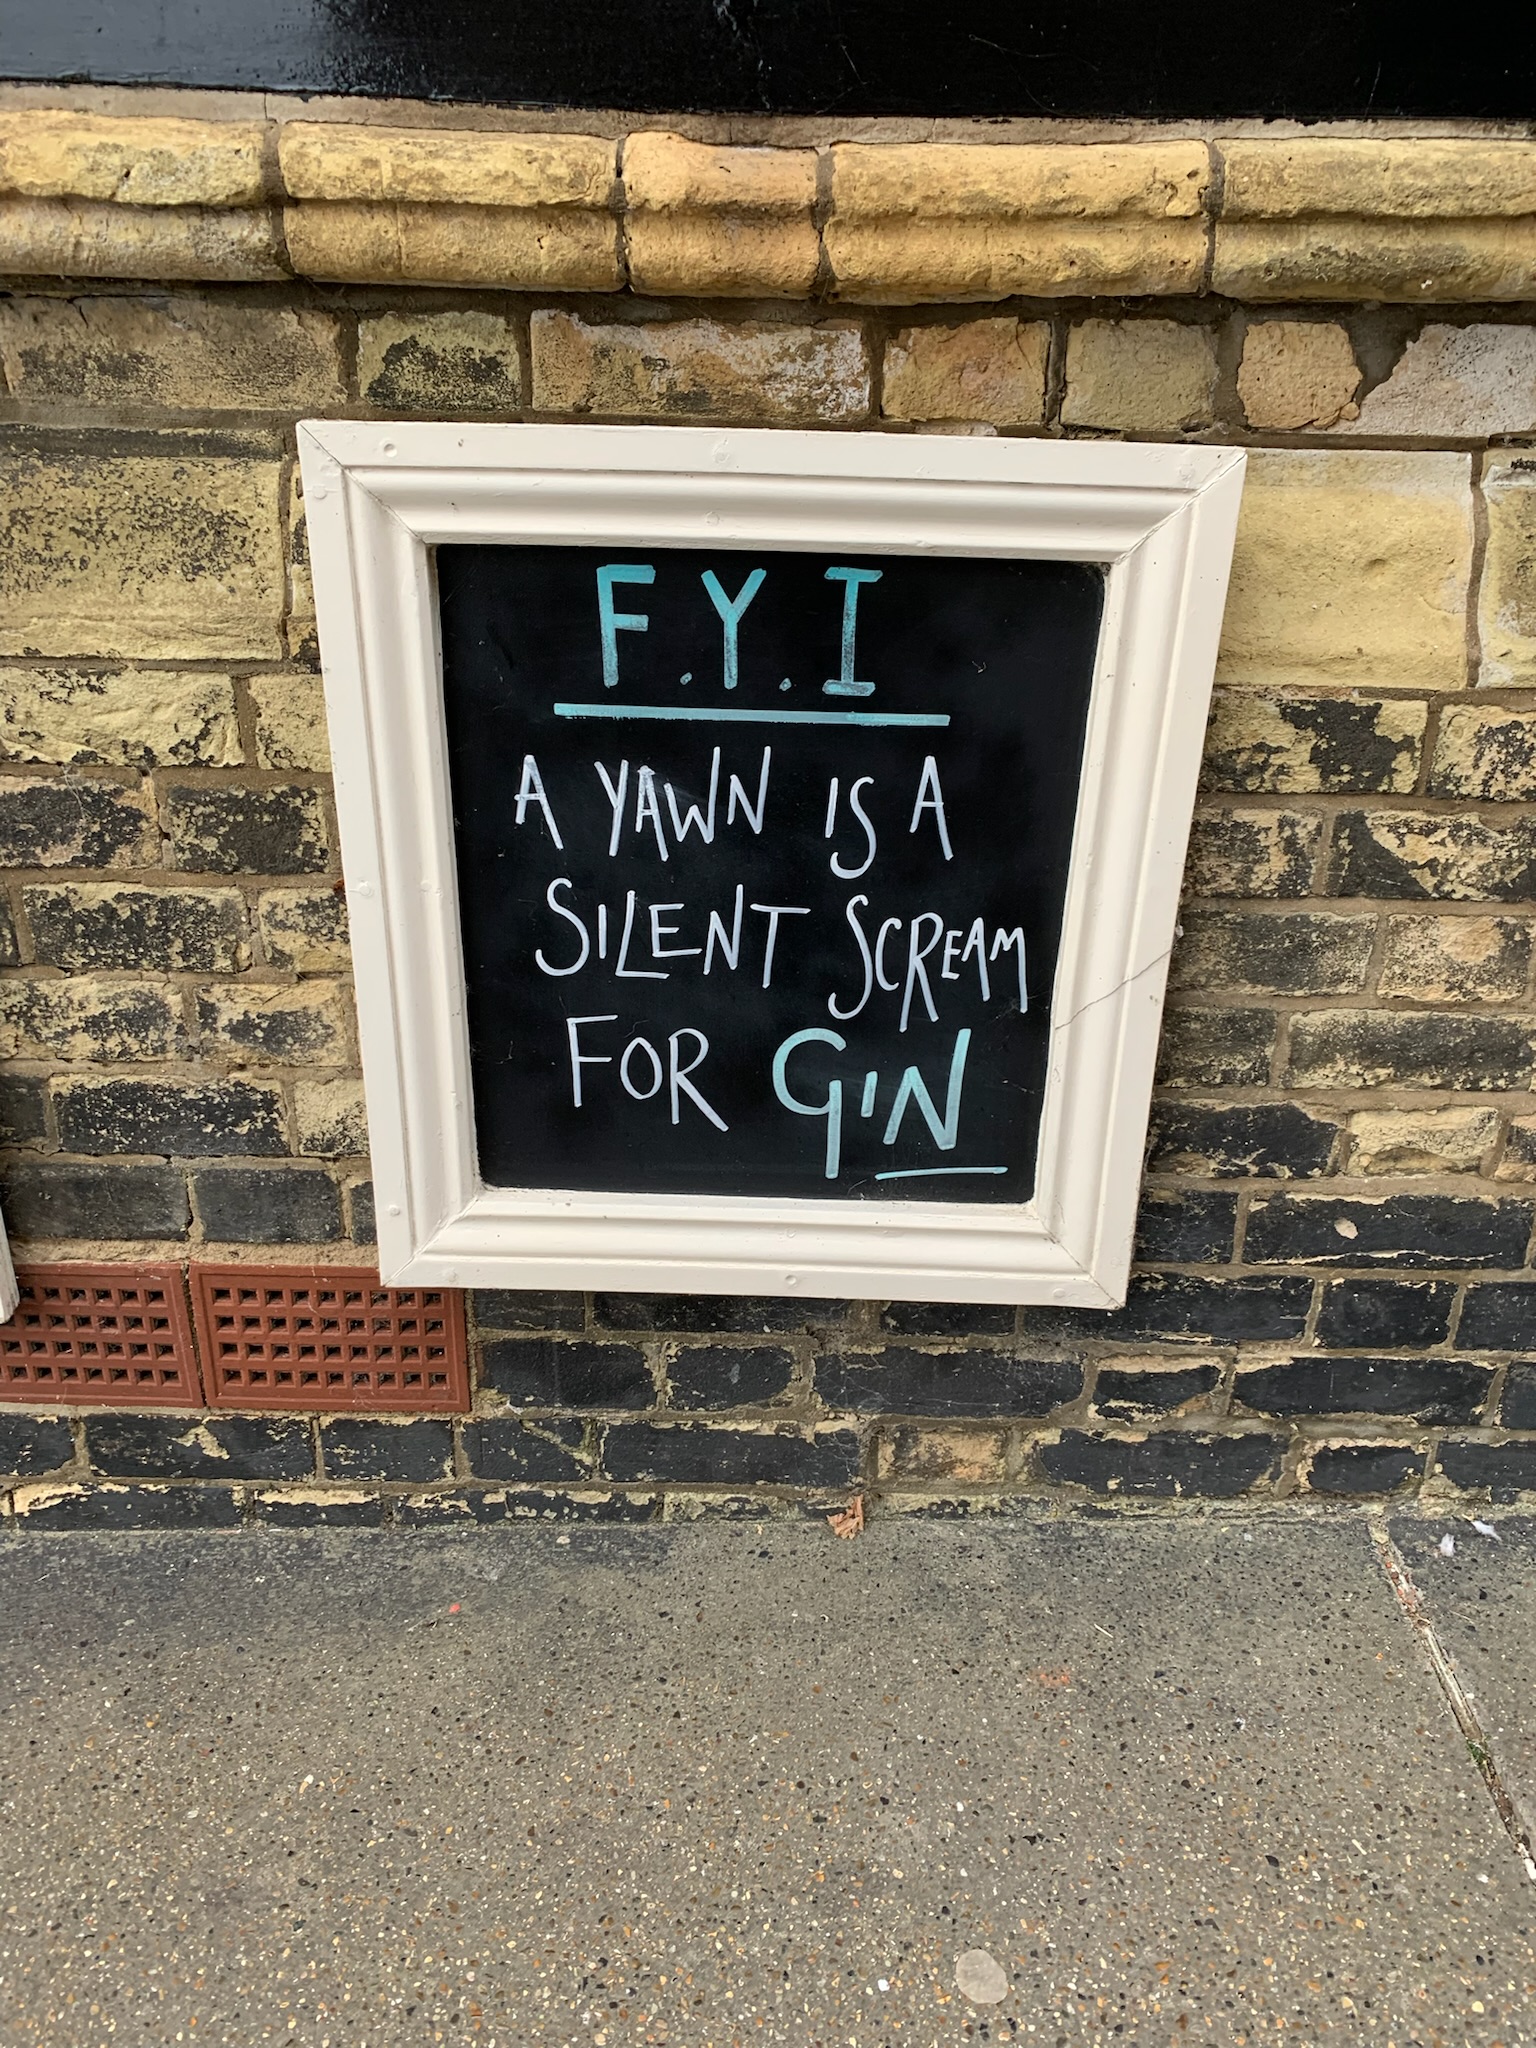 F.Y.I
A YAWN IS A
SILENT SCREAM
FOR GIN